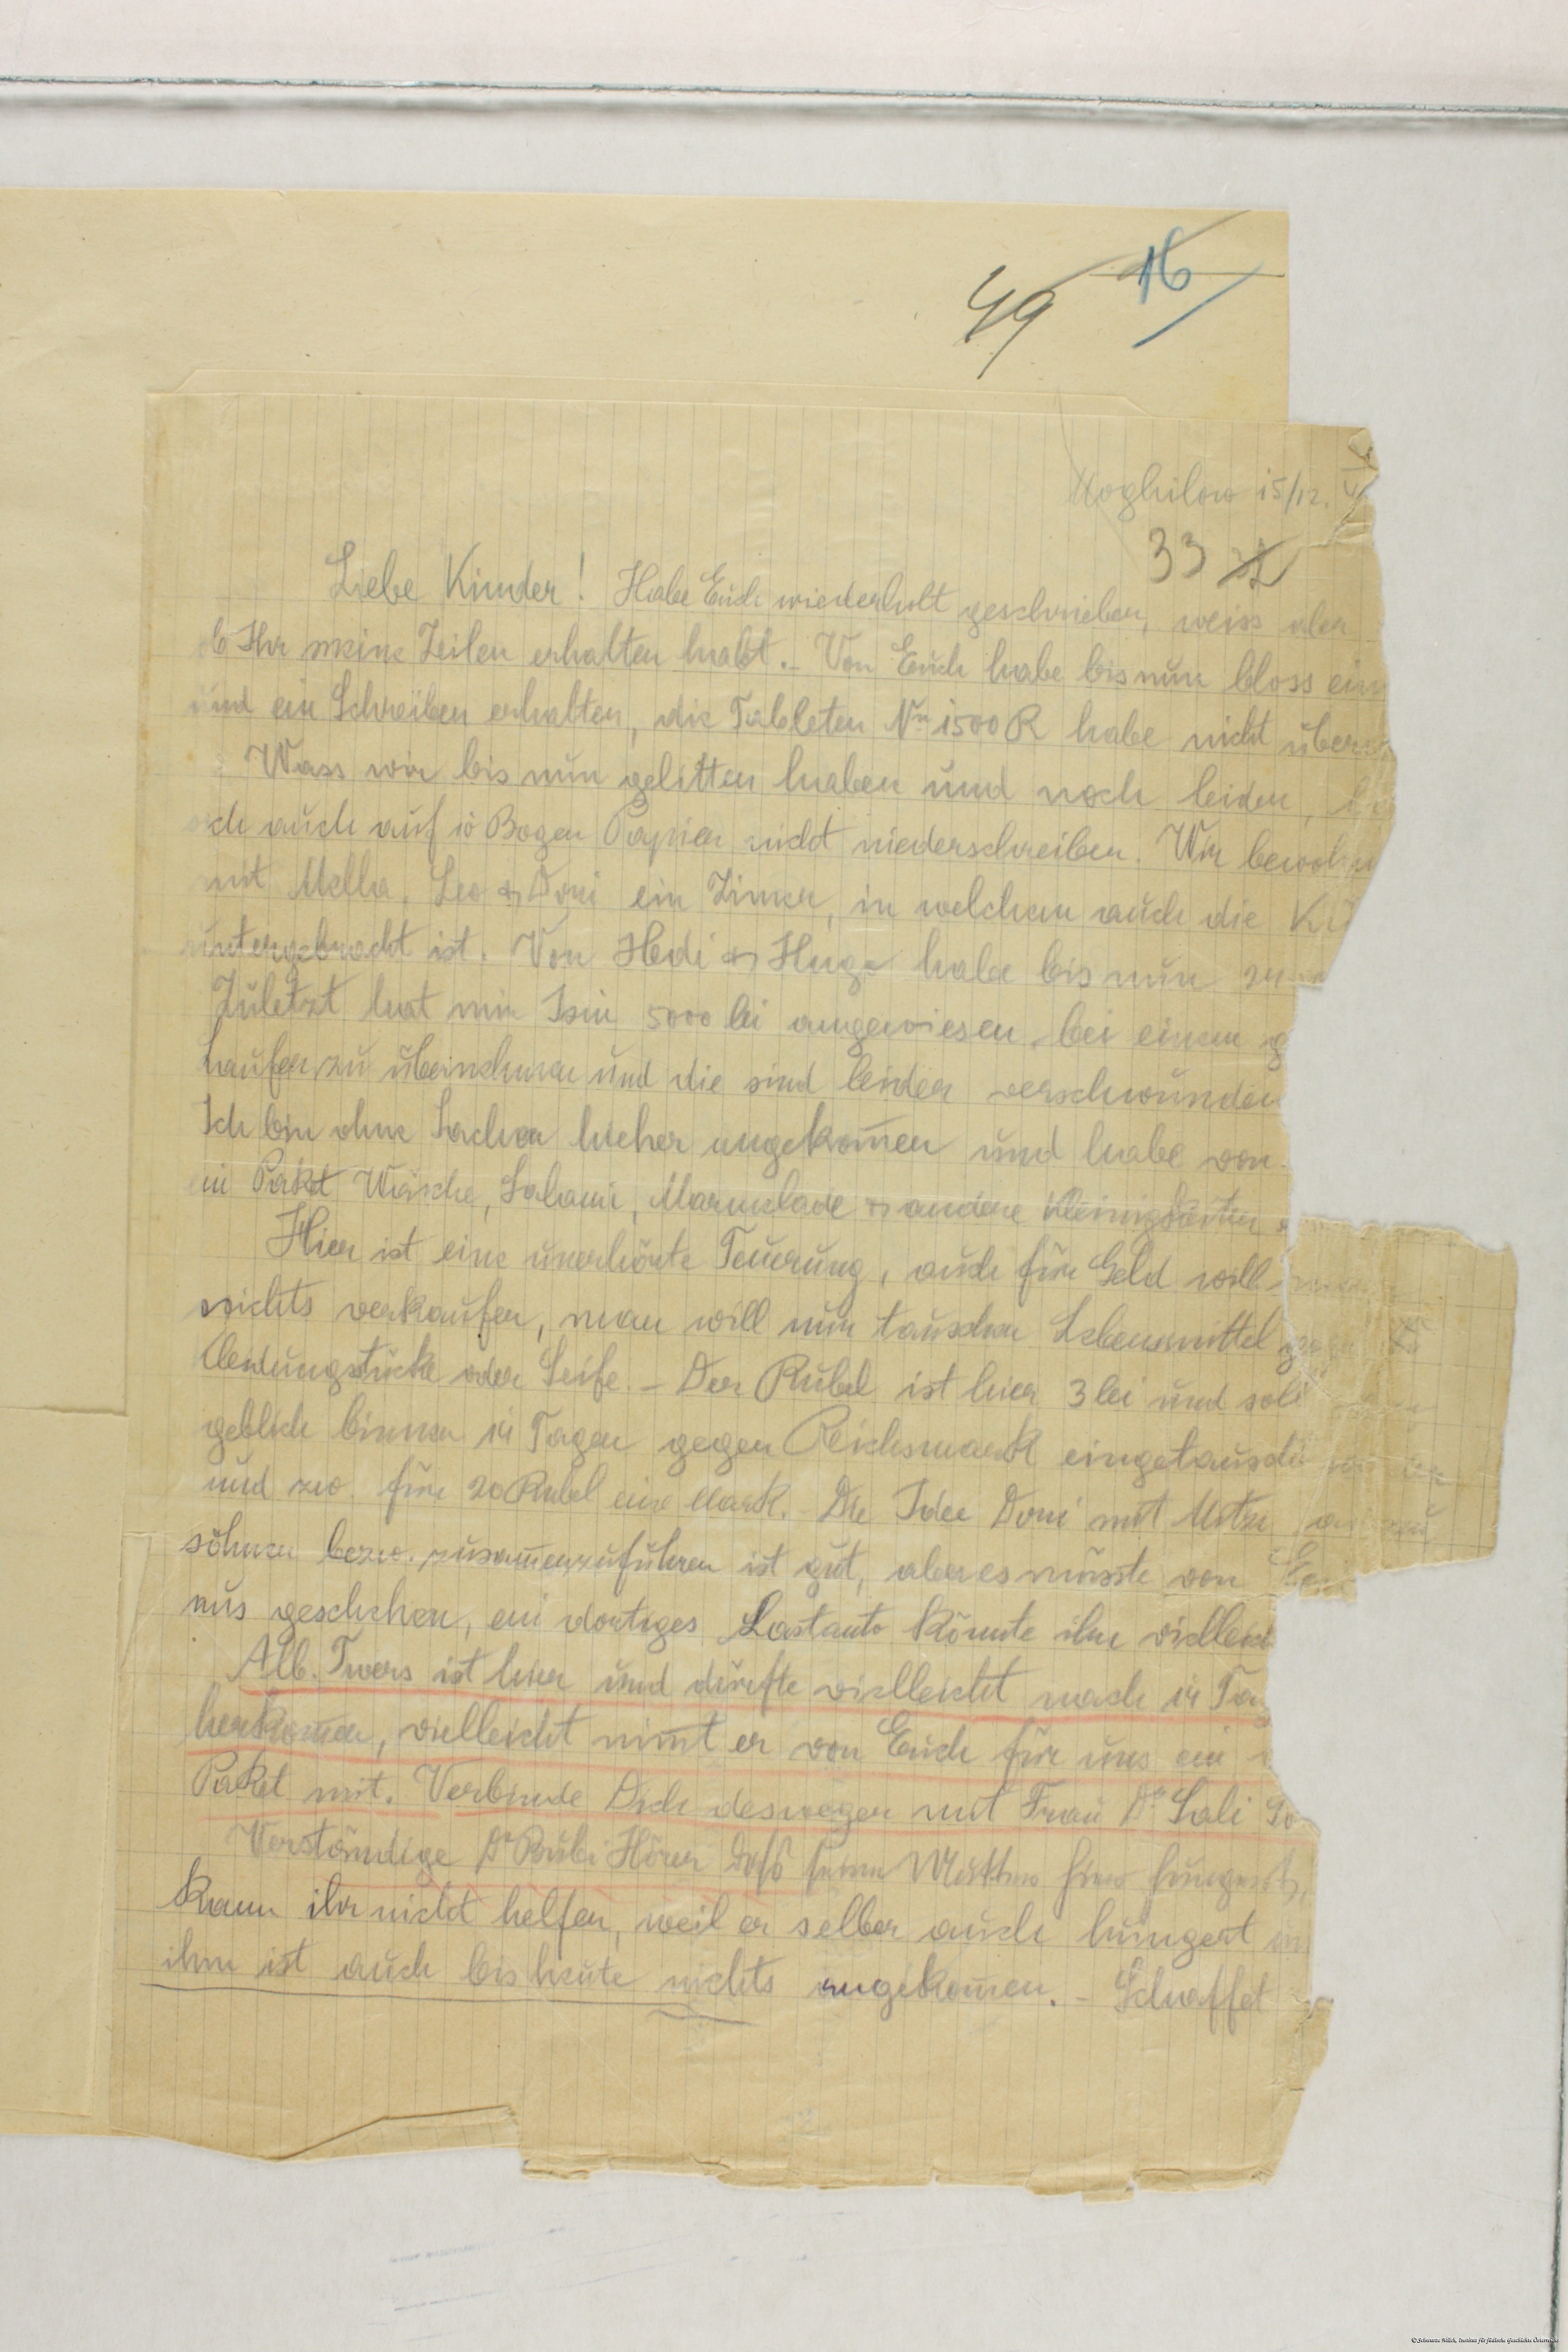 16
49
Moghilow 15/12. 41
33
Liebe Kinder! Habe Euch wiederholt geschrieben, weiss aber
ob Ihr meine Zeilen erhalten habt. – Von Euch habe bis nun bloss ein
und ein Schreiben erhalten, die Tabletten 1500 R habe nicht über
Wass wir bis nun gelitten haben und noch leiden,
ich auch auf 10 Bogen Papier nicht niederschreiben. Wir bewohnen
mit Mella, Leo & Doni ein Zimer, in welchem auch die Kü
untergebracht ist. Von Hedi & Hugo habe bis nun
Zuletzt hat mir Isiu 5000 lei angewiesen bei einem g
haufen zu übernehmen und die sind leider verschwunden
Ich bin ohne Sachen hieher angekom̄en und habe von
ein Paket Wäsche, Salami, Marmelade & andere Kleinigkeiten
Hier ist eine unerhörte Teuerung, auch für Geld will man
nichts verkaufen, man will nur tauschen Lebensmittel gegen
Kleidungstücke oder Seife. – Der Rubel ist hier 3 lei und soll
geblich binnen 14 Tagen gegen Reichsmark eingetauscht werden
und zw. für 20 Rubel eine Mark. – Die Idee Doni mit
söhnen bezw. zusam̄enzuführen ist gut, aber es müsste von
aus geschehen, ein dortiges Lastauto könnte ihn vielleicht
Alb. Twers ist hier und dürfte vielleicht nach 14 Tag
herkom̄en, vielleicht nim̄t er von Euch für uns ein
Paket mit. Verbinde Dich deswegen mit Frau Dr. Sali So
Verständige Dr Rubi Hörer daß seine Mutter hier hungert,
kann ihr nicht helfen, weil er selber auch hungert
ihm ist auch bis heute nichts angekom̄en. – Schaffet